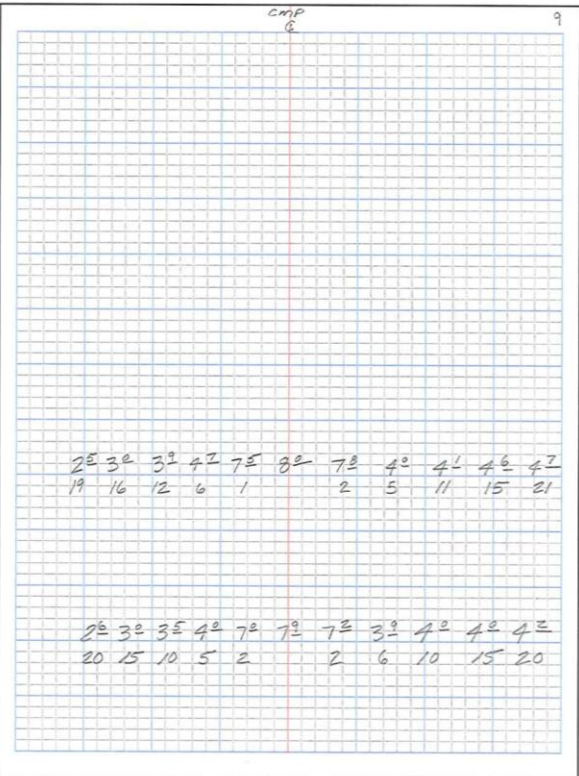 CMP 9
℄
2⁵ 3⁰ 3⁹ 4⁷ 7⁵ 8⁰ 7⁸ 4⁰ 4¹ 4⁶ 4⁷
19 16 12 6 1 2 5 11 15 21
2⁶ 3⁰ 3⁵ 4⁰ 7⁰ 7⁹ 7² 3⁹ 4⁰ 4⁰ 4²
20 15 10 5 2 2 6 10 15 20